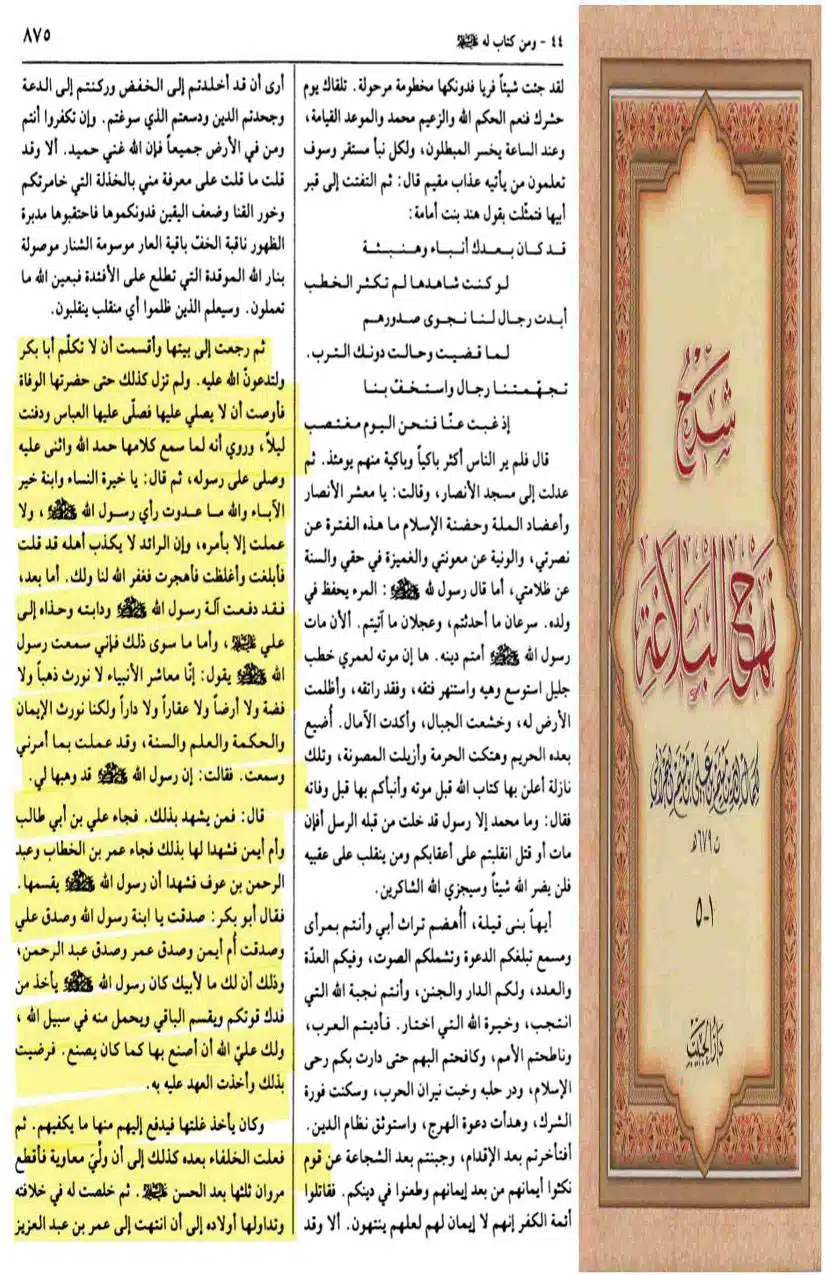 ٤٤ - ومن كتاب له ﷺ
٨٧٥
لقد جئت شيئاً فريا فدونكها مخطومة مرحولة. تلقاك يوم
حشرك فنعم الحكم الله والزعيم محمد والموعد القيامة،
وعند الساعة يخسر المبطلون، ولكل نبأ مستقر وسوف
تعلمون من يأتيه عذاب مقيم قال: ثم التفتت إلى قبر
أبيها فتمثّلت بقول هند بنت أمامة:
قد كان بعدك أنباء وهنبثة
لو كنت شاهدها لم تكثر الخطب
أبدت رجال لنا نجوى صدورهم
لما قضيت وحالت دونك الترب.
تجهّمتنا رجال واستخفّ بنا
إذ غبت عنّا فنحن اليوم مغتصب
قال فلم ير الناس أكثر باكياً وباكية منهم يومئذ. ثم
عدلت إلى مسجد الأنصار، وقالت: يا معشر الأنصار
وأعضاد الملة وحضنة الإسلام ما هذه الفترة عن
نصرتي، والونية عن معونتي والغميزة في حقي والسنة
عن ظلامتي، أما قال رسول لله ﷺ: المرء يحفظ في
ولده. سرعان ما أحدثتم، وعجلان ما آتيتم. ألأن مات
رسول الله ﷺ أمتم دينه. ها إن موته لعمري خطب
جليل استوسع وهيه واستنهر فتقه، وفقد راتقه، وأظلمت
الأرض له، وخشعت الجبال، وأكدت الآمال. أُضيع
بعده الحريم وهتكت الحرمة وأزيلت المصونة، وتلك
نازلة أعلن بها كتاب الله قبل موته وأنبأكم بها قبل وفاته
فقال: وما محمد إلا رسول قد خلت من قبله الرسل أفإن
مات أو قتل انقلبتم على أعقابكم ومن ينقلب على عقبيه
فلن يضر الله شيئاً وسيجزي الله الشاكرين.
أيهاً بنى قيلة، أأهضم تراث أبي وأنتم بمرأى
ومسمع تبلغكم الدعوة وتشملكم الصوت، وفيكم العدّة
والعدد، ولكم الدار والجنن، وأنتم نجبة الله التي
انتجب، وخيرة الله التي اختار. فأديتم العرب،
وناطحتم الأمم، وكافحتم البهم حتى دارت بكم رحى
الإسلام، ودر حلبه وخبت نيران الحرب، وسكنت فورة
الشرك، وهدأت دعوة الهرج، واستوثق نظام الدين.
أفتأخرتم بعد الإقدام، وجبنتم بعد الشجاعة عن قوم
نكثوا أيمانهم من بعد إيمانهم وطعنوا في دينكم. فقاتلوا
أئمة الكفر إنهم لا إيمان لهم لعلهم ينتهون. ألا وقد
أرى أن قد أخلدتم إلى الخفض وركنتم إلى الدعة
وجحدتم الدين ودسعتم الذي سوغتم. وإن تكفروا أنتم
ومن في الأرض جميعاً فإن الله غني حميد. ألا وقد
قلت ما قلت على معرفة مني بالخذلة التي خامرتكم
وخور القنا وضعف اليقين فدونكموها فاحتقبوها مدبرة
الظهور ناقبة الخفّ باقية العار موسومة الشنار موصولة
بنار الله الموقدة التي تطلع على الأفئدة فبعين الله ما
تعملون. وسيعلم الذين ظلموا أي منقلب ينقلبون.
ثم رجعت إلى بيتها وأقسمت أن لا تكلّم أبا بكر
ولتدعونّ الله عليه. ولم تزل كذلك حتى حضرتها الوفاة
فأوصت أن لا يصلي عليها فصلّى عليها العباس ودفنت
ليلاً، وروي أنه لما سمع كلامها حمد الله واثنى عليه
وصلى على رسوله، ثم قال: يا خيرة النساء وابنة خير
الآباء والله ما عدوت رأي رسول الله ﷺ، ولا
عملت إلا بأمره، وإن الرائد لا يكذب أهله قد قلت
فأبلغت وأغلظت فأهجرت فغفر الله لنا ولك. أما بعد،
فقد دفعت آلة رسول الله ﷺ ودابته وحذاه إلى
علي، وأما ما سوى ذلك فإني سمعت رسول
الله ﷺ يقول: إنّا معاشر الأنبياء لا نورث ذهباً ولا
فضة ولا أرضاً ولا عقاراً ولا داراً ولكنا نورث الإيمان
والحكمة والعلم والسنة، وقد عملت بما أمرني
وسمعت. فقالت: إن رسول الله ﷺ قد وهبها لي.
قال: فمن يشهد بذلك. فجاء علي بن أبي طالب
وأم أيمن فشهدا لها بذلك فجاء عمر بن الخطاب وعبد
الرحمن بن عوف فشهدا أن رسول الله ﷺ يقسمها.
فقال أبو بكر: صدقت يا ابنة رسول الله وصدق علي
وصدقت أم أيمن وصدق عمر وصدق عبد الرحمن،
وذلك أن لك ما لأبيك كان رسول الله ﷺ يأخذ من
فدك قوتكم ويقسم الباقي ويحمل منه في سبيل الله،
ولك عليّ الله أن أصنع بها كما كان يصنع. فرضيت
بذلك وأخذت العهد عليه به.
وكان يأخذ غلتها فيدفع إليهم منها ما يكفيهم. ثم
فعلت الخلفاء بعده كذلك إلى أن ولّيَ معاوية فأقطع
مروان ثلثها بعد الحسن. ثم خلصت له في خلافته
وتداولها أولاده إلى أن انتهت إلى عمر بن عبد العزيز
شرح
نهج البلاغة
ت ٦٧٩ هـ
١-٥
دار الحبيب